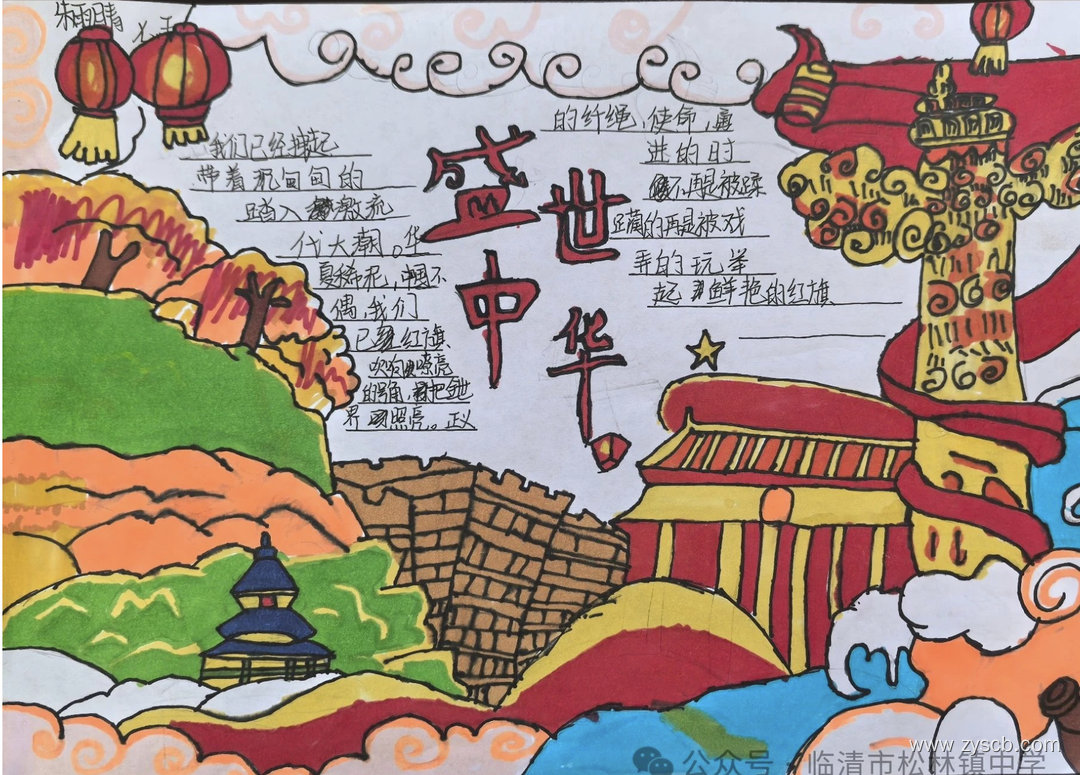 朱雨晴
盛世
中华
我们已经撑起
带着沉甸甸的
踏入激流
代大潮。华
夏稀祀,中国不
偶,我们
已红旗
吹响嘹亮
的号角,把全世
界照亮。正义
的纤绳,使命,
进的时
不再是被蹂
躏的再是被戏
弄的玩举
起鲜艳的红旗
www.zyscb.com
公众号·临清市松林镇中学